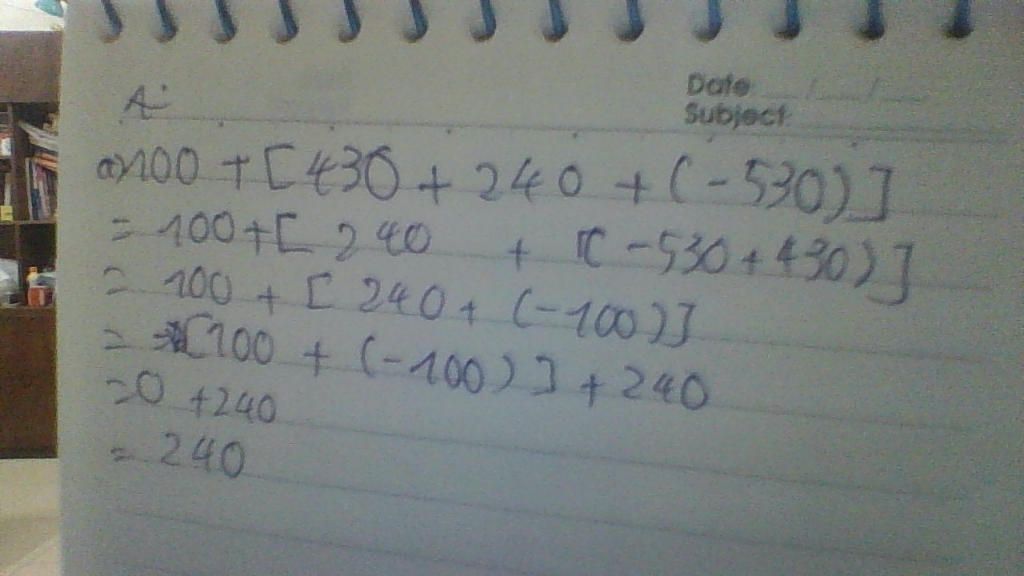 A:
Date / /
Subject:
a) 100 + [430 + 240 + (-530)]
= 100 + [ 240 + [(-530 + 430)]
= 100 + [ 240 + (-100)]
= [100 + (-100)] + 240
= 0 + 240
= 240